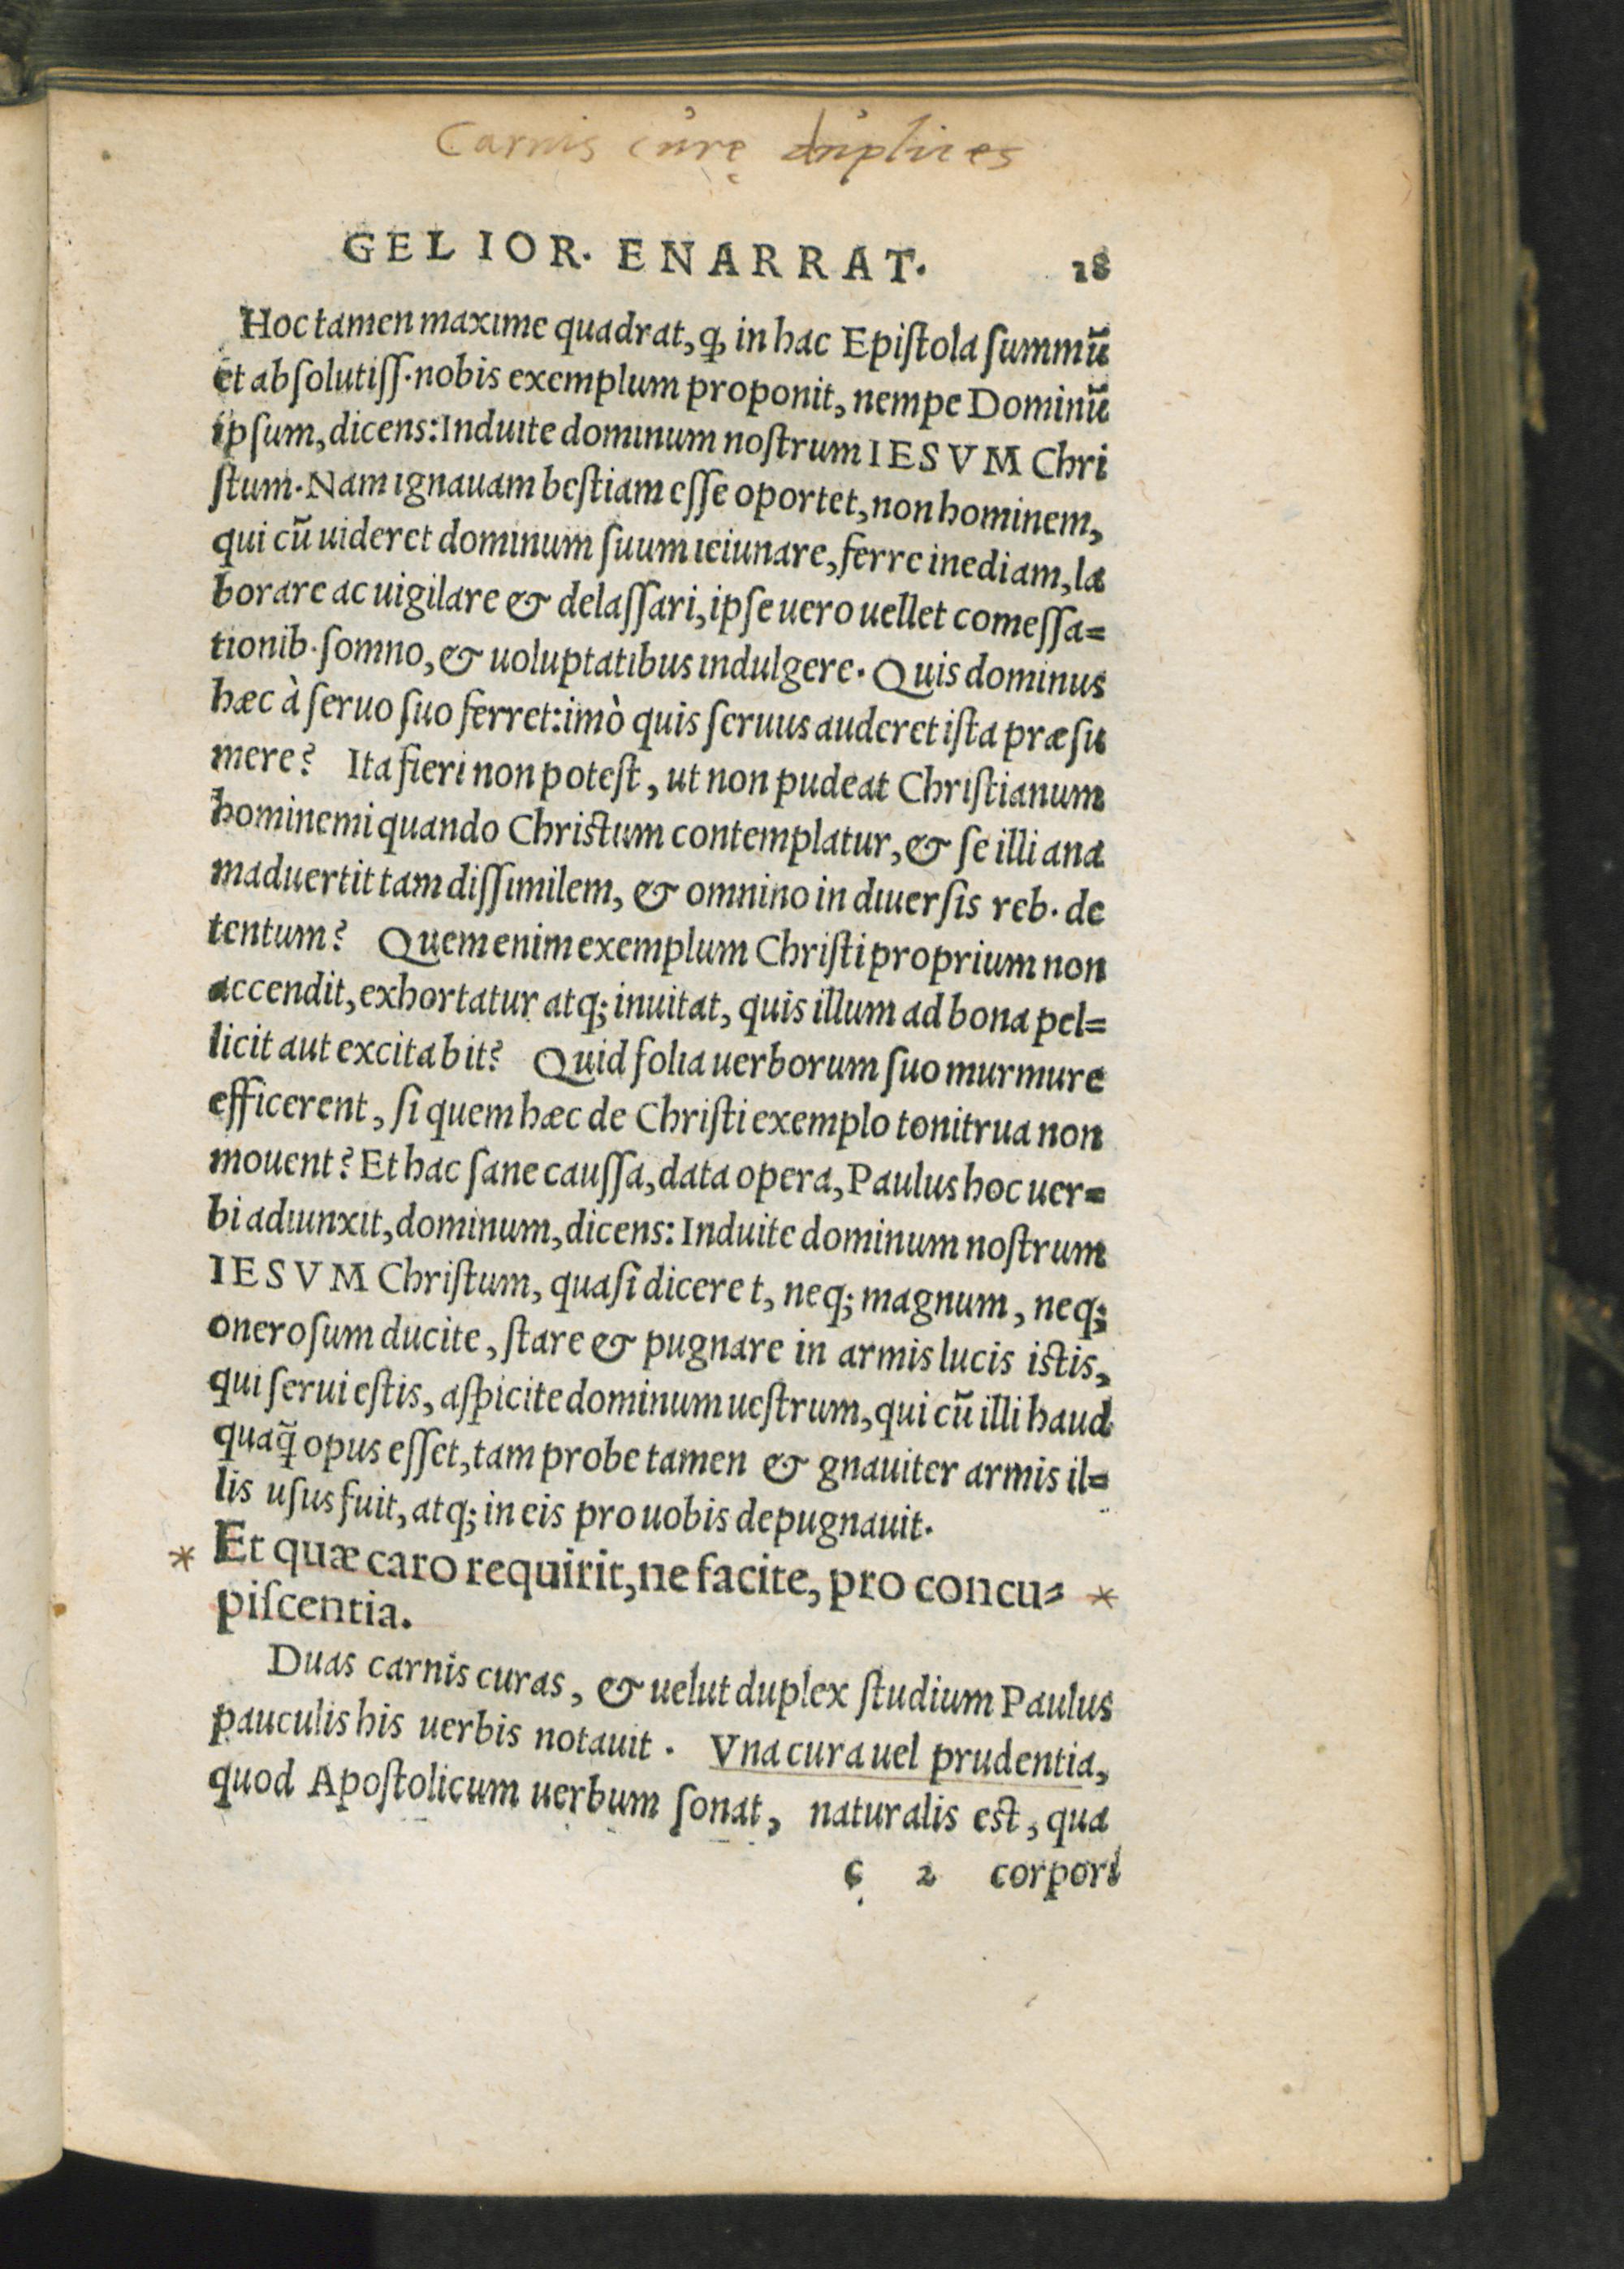 Carnis curę duplices
GELIOR. ENARRAT. 18
Hoc tamen maxime quadrat, ꝙ in hac Epiſtola ſummũ
et abſolutiſſ. nobis exemplum proponit, nempe Dominũ
ipſum, dicens: Induite dominum noſtrum IESVM Chri
ſtum. Nam ignauam beſtiam eſſe oportet, non hominem,
qui cũ uideret dominum ſuum ieiunare, ferre inediam, la
borare ac uigilare & delaſſari, ipſe uero uellet comeſſa=
tionib. ſomno, & uoluptatibus indulgere. Quis dominus
hæc à ſeruo ſuo ferret: imò quis ſeruus auderet iſta præſu
mere? Ita fieri non poteſt, ut non pudeat Chriſtianum
hominemi quando Chriſtum contemplatur, & ſe illi ana
maduertit tam diſſimilem, & omnino in diuerſis reb. de
tentum? Quem enim exemplum Chriſti proprium non
accendit, exhortatur atq; inuitat, quis illum ad bona pel=
licit aut excitabit? Quid folia uerborum ſuo murmure
efficerent, ſi quem hæc de Chriſti exemplo tonitrua non
mouent? Et hac ſane cauſſa, data opera, Paulus hoc uer=
bi adiunxit, dominum, dicens: Induite dominum noſtrum
IESVM Chriſtum, quaſi diceret, neq; magnum, neq;
oneroſum ducite, ſtare & pugnare in armis lucis iſtis,
qui ſerui eſtis, aſpicite dominum ueſtrum, qui cũ illi haud
quaq̃ opus eſſet, tam probe tamen & gnauiter armis il=
lis uſus fuit, atq; in eis pro uobis depugnauit.
* Et quæ caro requirit, ne facite, pro concu= *
piſcentia.
Duas carnis curas, & uelut duplex ſtudium Paulus
pauculis his uerbis notauit. Vna cura uel prudentia,
quod Apoſtolicum uerbum ſonat, naturalis eſt, qua
c 2 corpori